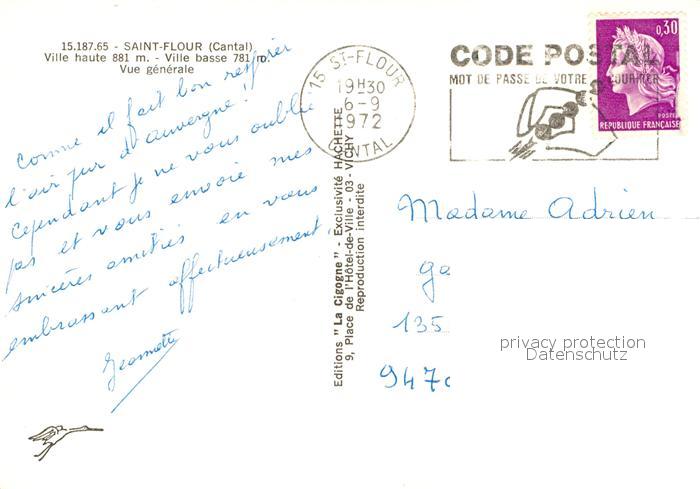 15.187.65 - SAINT-FLOUR (Cantal)
Ville haute 881 m. - Ville basse 781 m.
Vue générale
comme il fait bon respirer
l'air pur d'auvergne !
Cependant je ne vous oublie
pas et vous envoie mes
sincères amitiés en vous
embrassant affectueusement
15 ST-FLOUR
19H30
6-9
1972
CANTAL
CODE POSTAL
MOT DE PASSE DE VOTRE COURRIER
0,30
POSTES
REPUBLIQUE FRANÇAISE
Editions "La Cigogne" - Exclusivité HACHETTE
9, Place de l'Hôtel-de-Ville - 03 - VICHY
Reproduction interdite
Madame Adrien
ga
135
947
privacy protection
Datenschutz